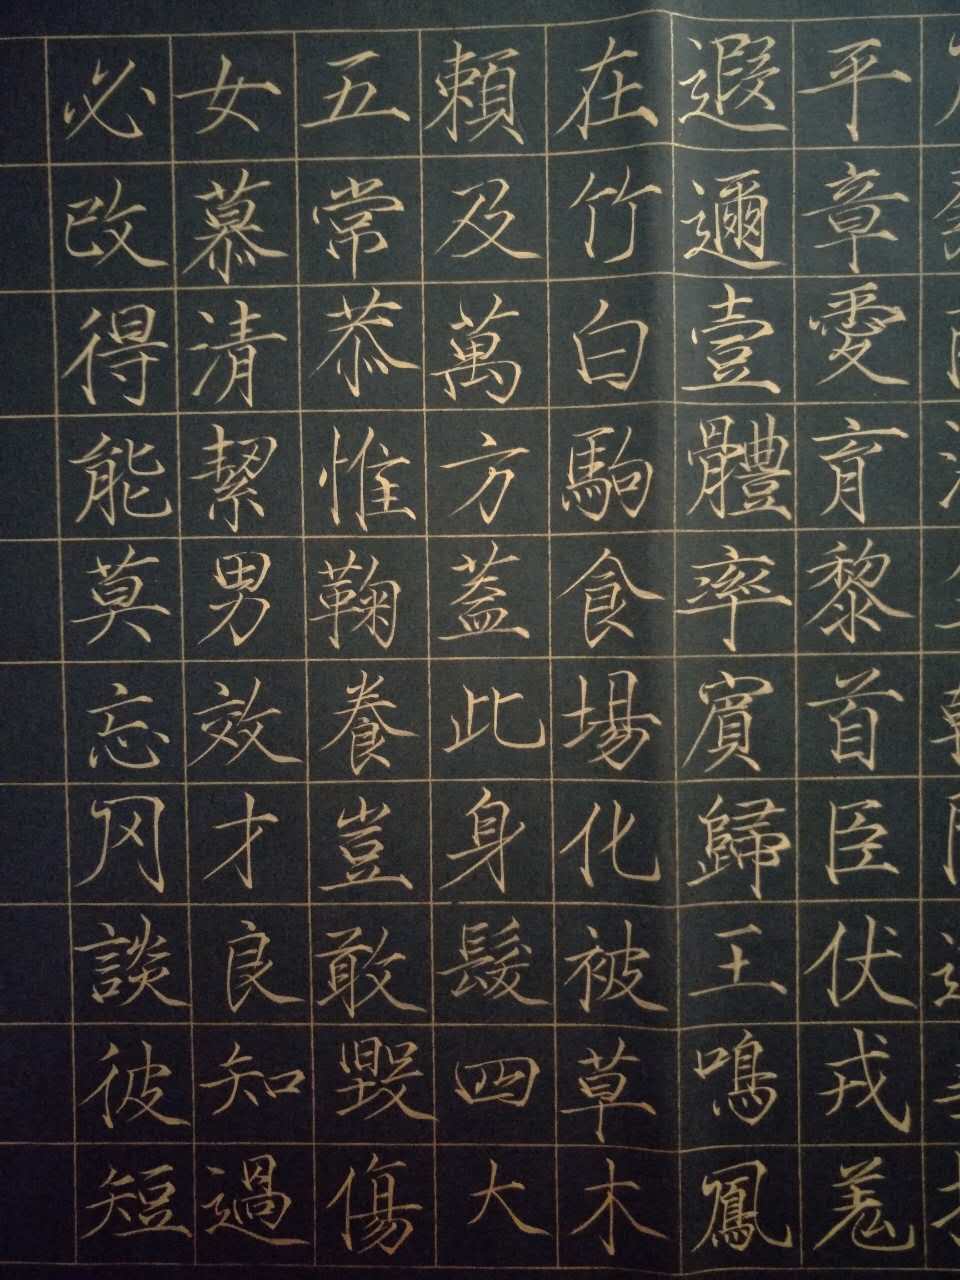 平章愛育黎首臣伏戎羌
遐邇壹體率賓歸王鳴鳳
在竹白駒食場化被草木
賴及萬方蓋此身髮四大
五常恭惟鞠養豈敢毀傷
女慕清絜男效才良知過
必改得能莫忘罔談彼短